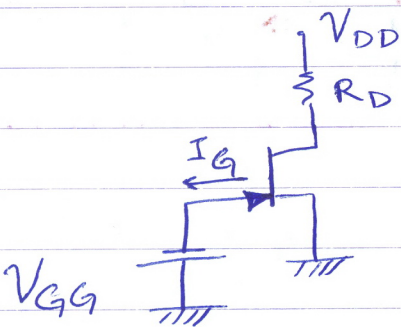 VDD
RD
IG
VGG